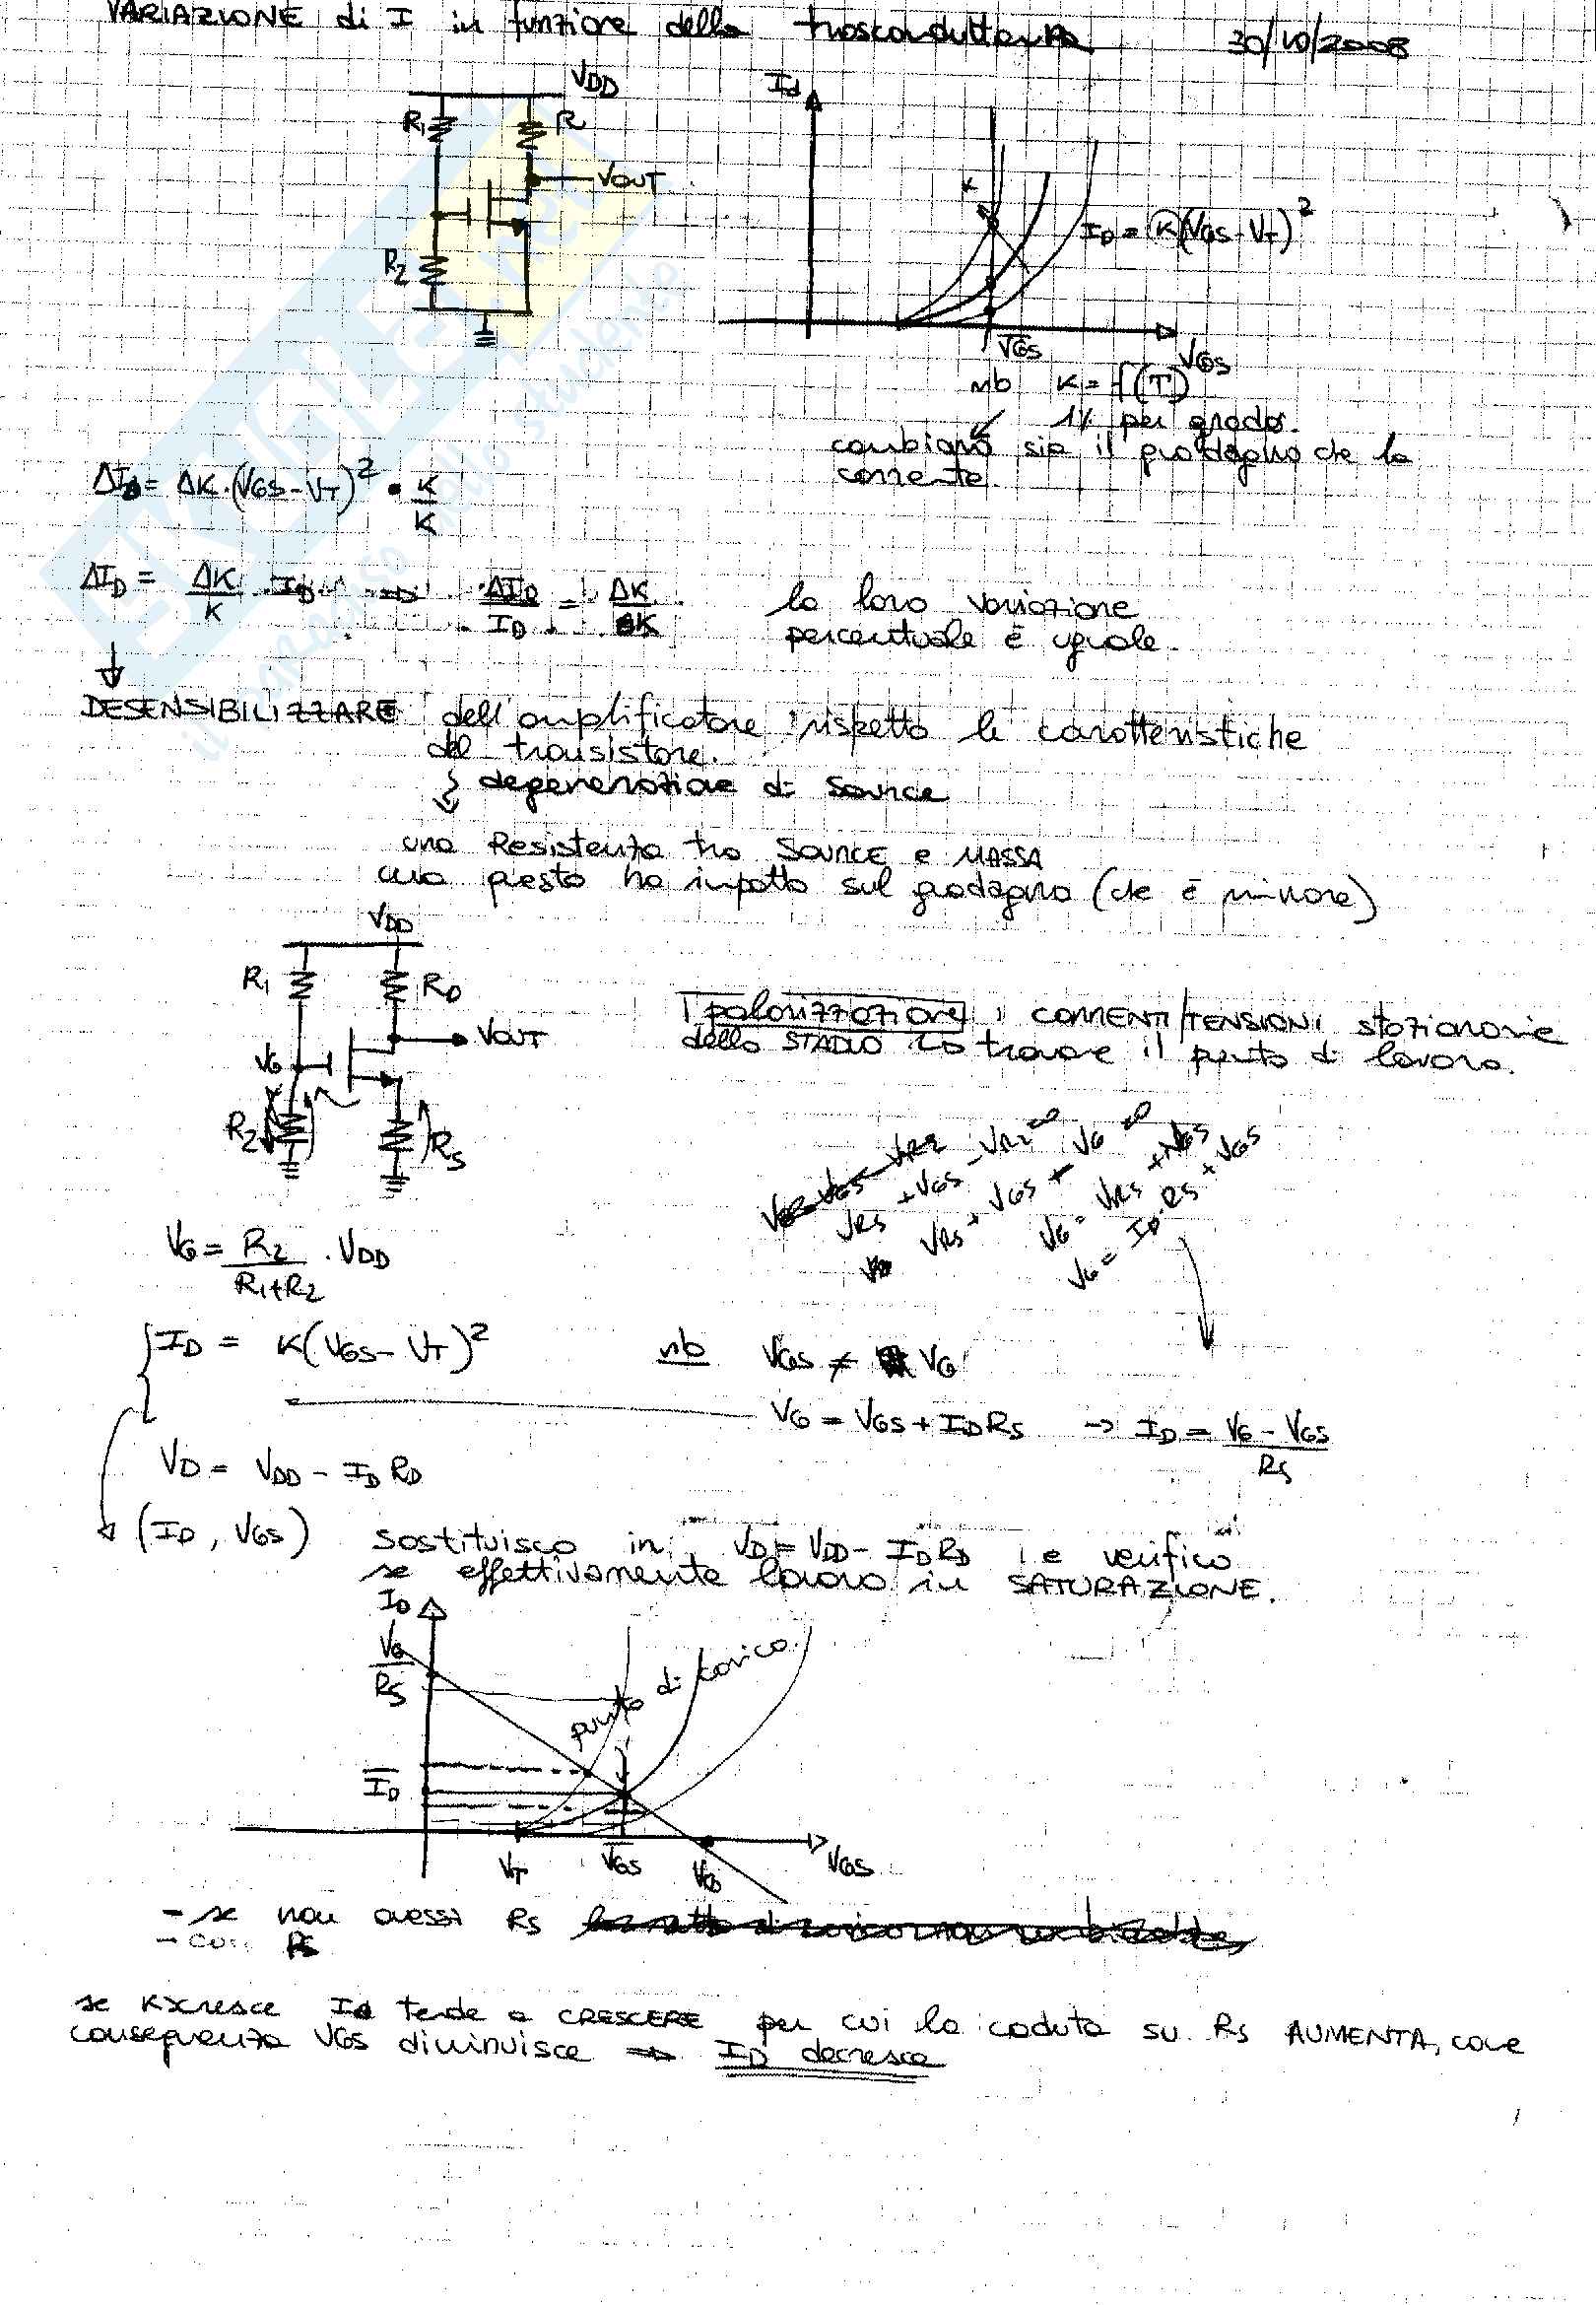 VARIAZIONE di I in funzione della trasconduttanza 30/10/2008
VDD
R1
R
VOUT
R2
Id
K
ID = K(VGS-VT)²
VGS
VGS
nb K = f(T)
1% per grado.
cambiano sia il guadagno che la
corrente.
ΔID = ΔK·(VGS-VT)² • K/K
ΔID = ΔK/K · ID → ΔID/ID = ΔK/K
la loro variazione
percentuale è uguale.
DESENSIBILIZZARE dell'amplificatore rispetto le caratteristiche
del transistore.
degenerazione di Source
una Resistenza tra SOURCE e MASSA
ma questo ha impatto sul guadagno (che è minore)
VDD
R1
RD
VOUT
VG
R2
RS
polarizzazione, CORRENTI/TENSIONI stazionarie
dello STADIO Lo trovare il punto di lavoro.
VRS + VGS - VR2 = 0
VRS + VGS - VG = 0
VG = VRS + VGS
VG = ID·RS + VGS
VG = R2/(R1+R2) · VDD
ID = K(VGS - VT)² nb VGS ≠ VG
VG = VGS + IDRS → ID = (VG - VGS)/RS
VD = VDD - ID RD
(ID, VGS) sostituisco in VD = VDD - IDRD e verifico
se effettivamente lavoro in SATURAZIONE.
ID
VG/RS
punto di carico
ID
VT
VGS
VG
VGS
- se non avessi RS
- con RS
se K cresce ID tende a CRESCERE per cui la caduta su RS AUMENTA, come
conseguenza VGS diminuisce ⇒ ID decresce